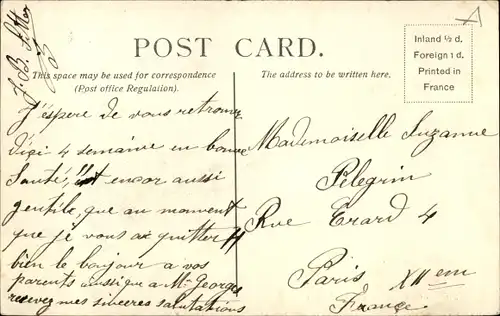 POST CARD.
This space may be used for correspondence
(Post office Regulation).
The address to be written here.
Inland ½ d.
Foreign 1 d.
Printed in
France
J'éspere de vous retrouvez
d'ici 4 semaine en bonne
Santé, et encor aussi
gentile, que au moment
que je vous ai quitter
bien le bonjour a vos
parents aussi que a Mr Georges
recevez mes sinceres salutations
Mademoiselle Suzanne
Pelegrin
Rue Erard 4
Paris XII em
France